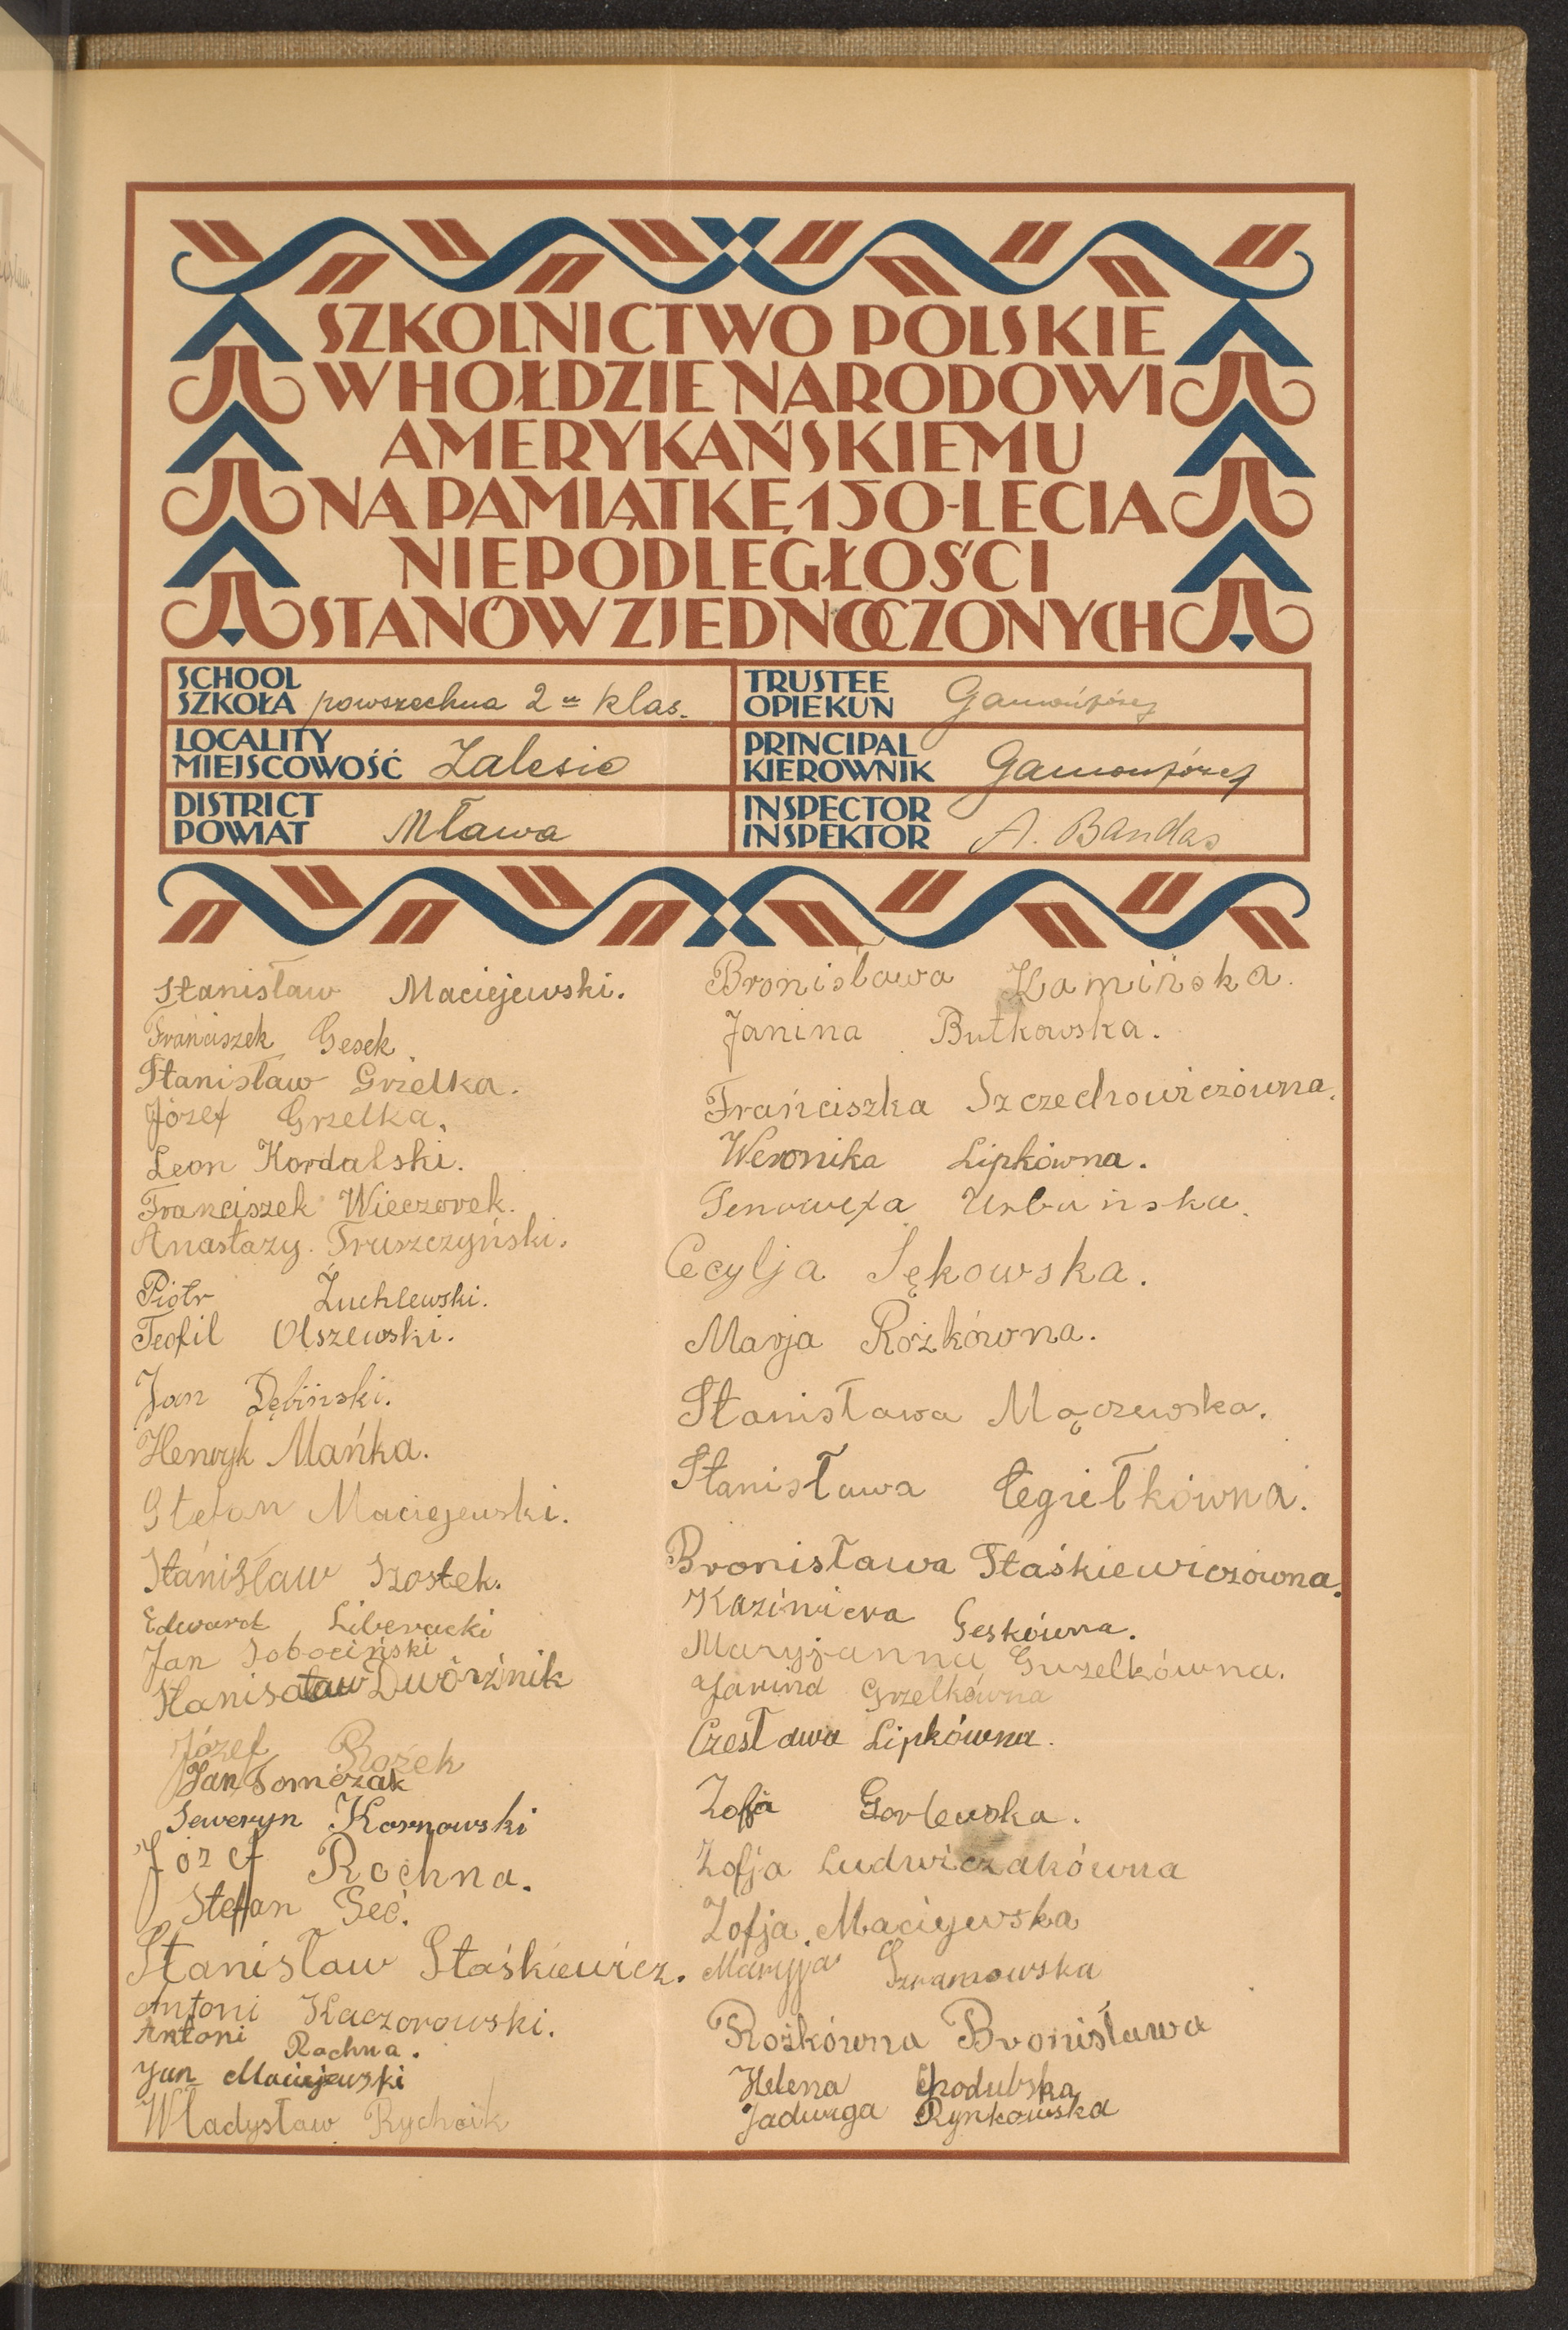 SZKOLNICTWO POLSKIE
W HOŁDZIE NARODOWI
AMERYKAŃSKIEMU
NA PAMIĄTKĘ 150-LECIA
NIEPODLEGŁOŚCI
STANÓW ZJEDNOCZONYCH
SCHOOL
SZKOŁA powszechna 2 klas.
TRUSTEE
OPIEKUN
LOCALITY
MIEJSCOWOŚĆ Zalesie
PRINCIPAL
KIEROWNIK
DISTRICT
POWIAT Mława
INSPECTOR
INSPEKTOR A. Bandas
Stanisław Maciejewski.
Franciszek Gesek
Stanisław Grzelka.
Józef Grzelka.
Leon Kordalski.
Franciszek Wieczorek.
Anastazy. Truszczyński.
Piotr Żuchlewski.
Teofil Olszewski.
Jan Dębiński.
Henryk Mańka.
Stefan Maciejewski.
Stanisław Szostek.
Edward Liberacki
Jan Sobociński
Stanisław Dwórznik
Józef Rożek
Jan Tomczak
Seweryn Kornowski
Józef Rochna.
Stefan Geć.
Stanisław Staśkiewicz.
Antoni Kaczorowski.
Antoni Rochna.
Jan Maciejewski
Władysław Rychcik
Bronisława Kamińska.
Janina Butkowska.
Franciszka Szczechowiczówna.
Weronika Lipkówna.
Genowefa Urbańska.
Cecylja Sękowska.
Marja Rożkówna.
Stanisława Mączewska.
Stanisława Cegiełkówna.
Bronisława Staśkiewiczówna.
Kazimiera Geskówna.
Maryjanna Grzelkówna.
Janina Grzelkówna
Czesława Lipkówna.
Zofja Gorlewska.
Zofja Ludwiczakówna
Zofja Maciejewska
Maryja Szramowska
Rożkówna Bronisława
Helena Chodubska
Jadwiga Rynkowska